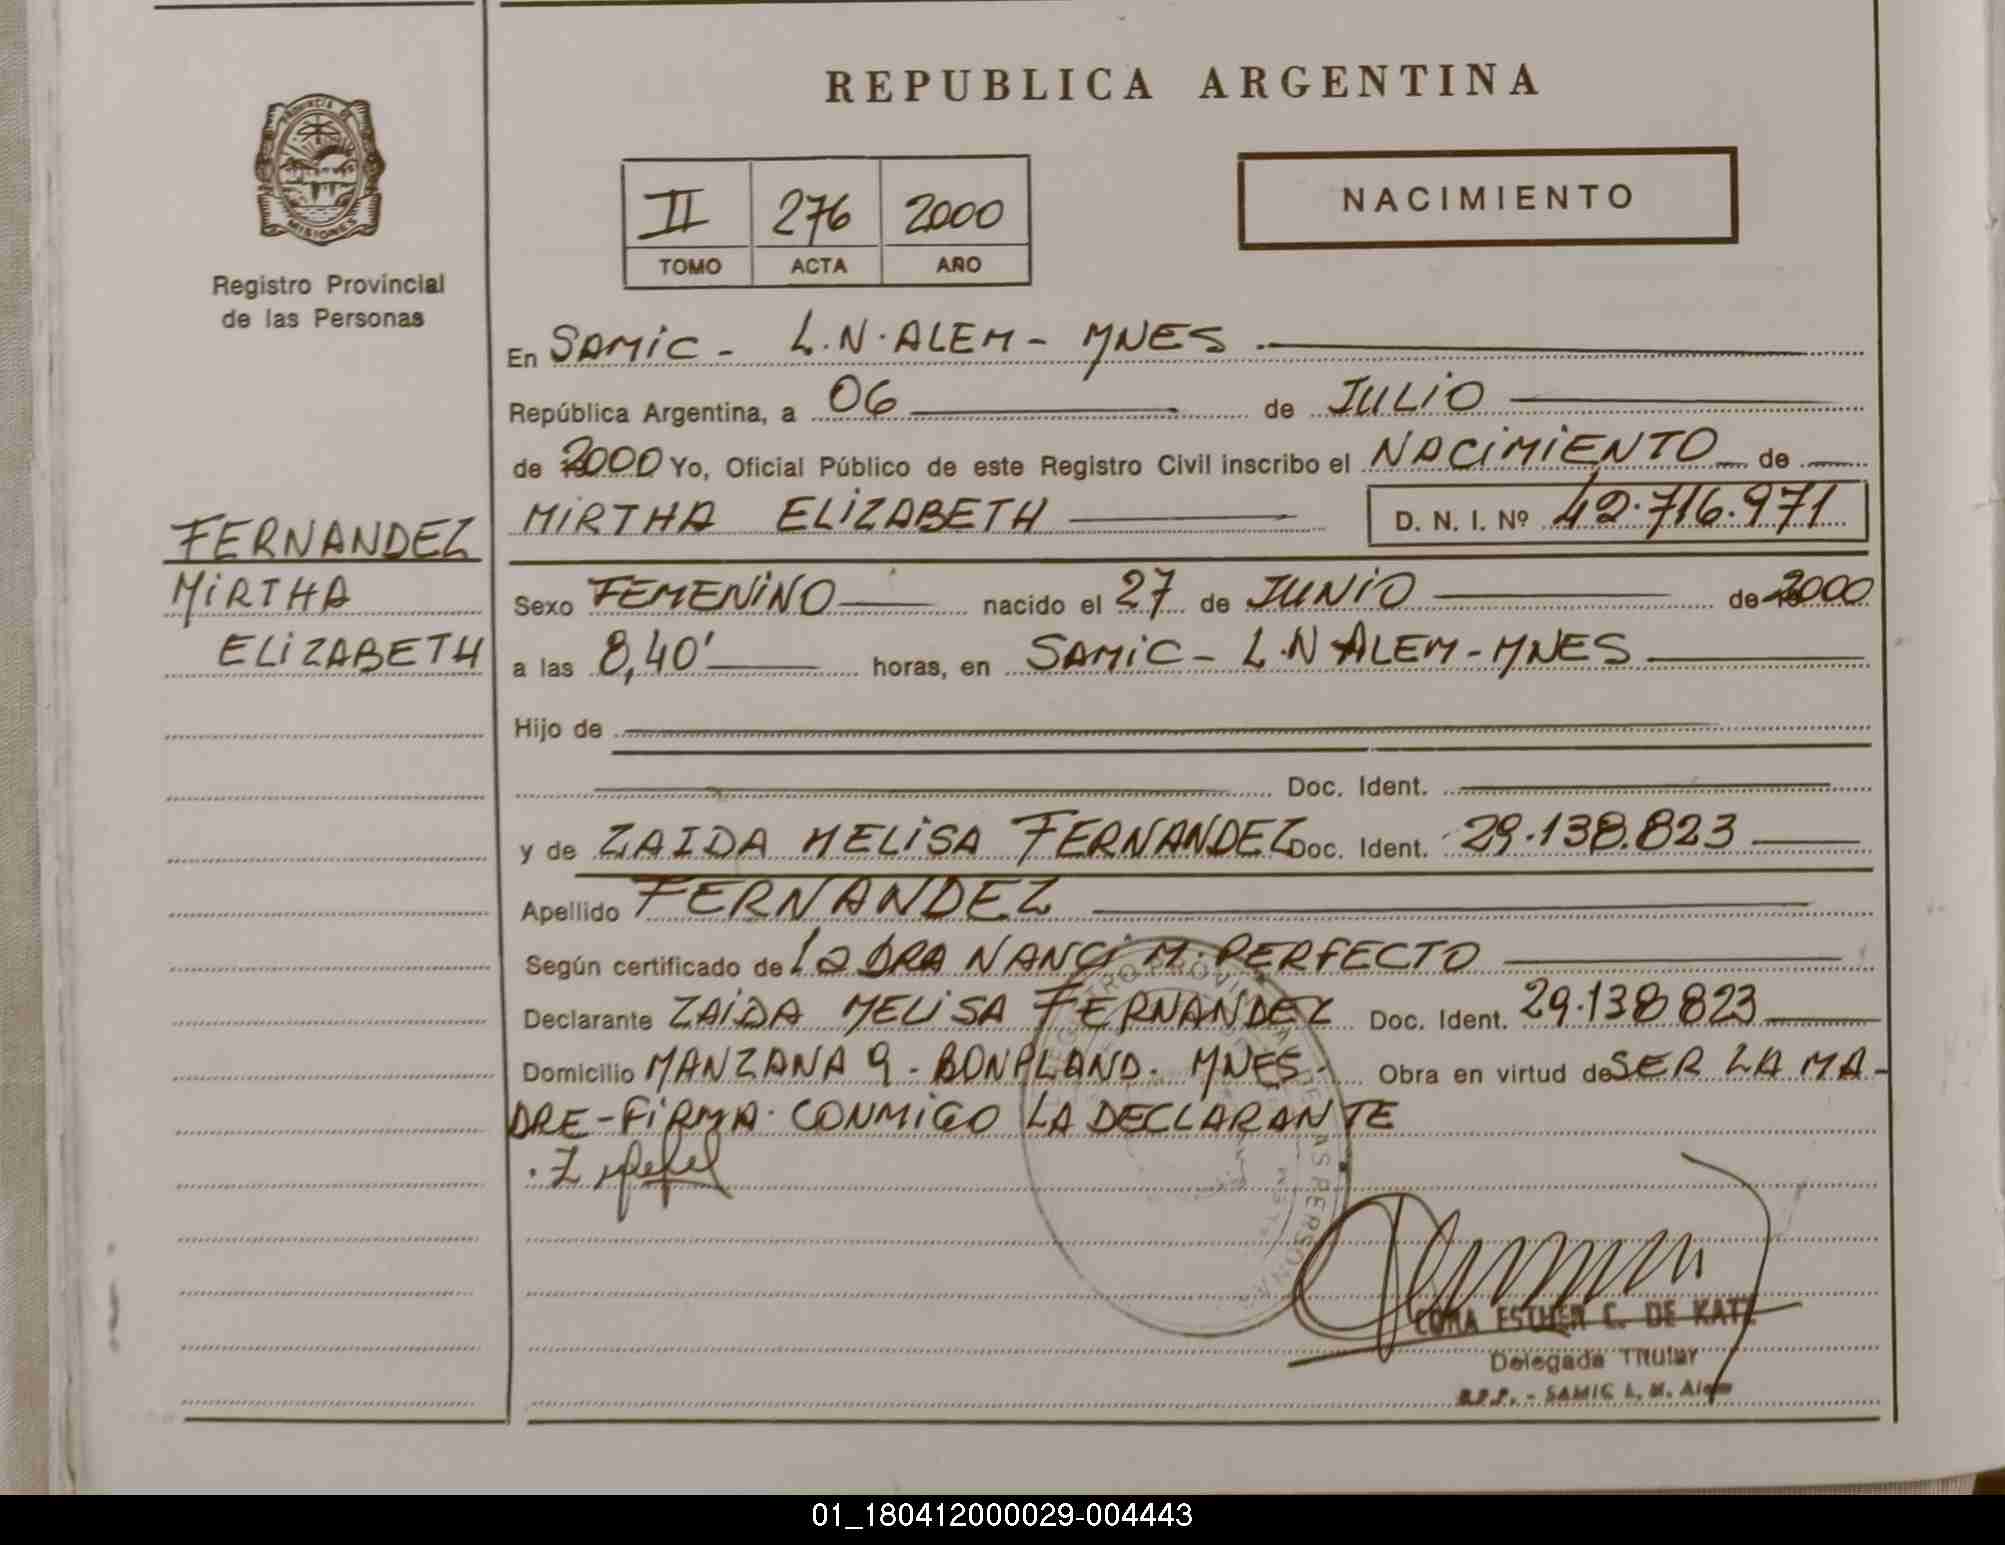 REPUBLICA ARGENTINA
PROVINCIA DE
MISIONES
Registro Provincial
de las Personas
II 276 2000
TOMO ACTA AÑO
NACIMIENTO
En SAMIC - L.N. ALEM - MNES
República Argentina, a 06 de JULIO
de 2000 Yo, Oficial Público de este Registro Civil inscribo el NACIMIENTO de
MIRTHA ELIZABETH D. N. I. Nº 42.716.971
FERNANDEZ
MIRTHA
ELIZABETH
Sexo FEMENINO nacido el 27 de JUNIO de 2000
a las 8,40' horas, en SAMIC - L.N ALEM - MNES
Hijo de
Doc. Ident.
y de ZAIDA MELISA FERNANDEZ Doc. Ident. 29.138.823
Apellido FERNANDEZ
Según certificado de La DRA NANCI M. PERFECTO
Declarante ZAIDA MELISA FERNANDEZ Doc. Ident. 29.138 823
Domicilio MANZANA 9 - BONPLAND - MNES - Obra en virtud de SER LA MA-
DRE - FIRMA CONMIGO LA DECLARANTE
CORA ESTHER C. DE KATZ
Delegada Titular
R.P.P. - SAMIC L. N. Alem
01_180412000029-004443